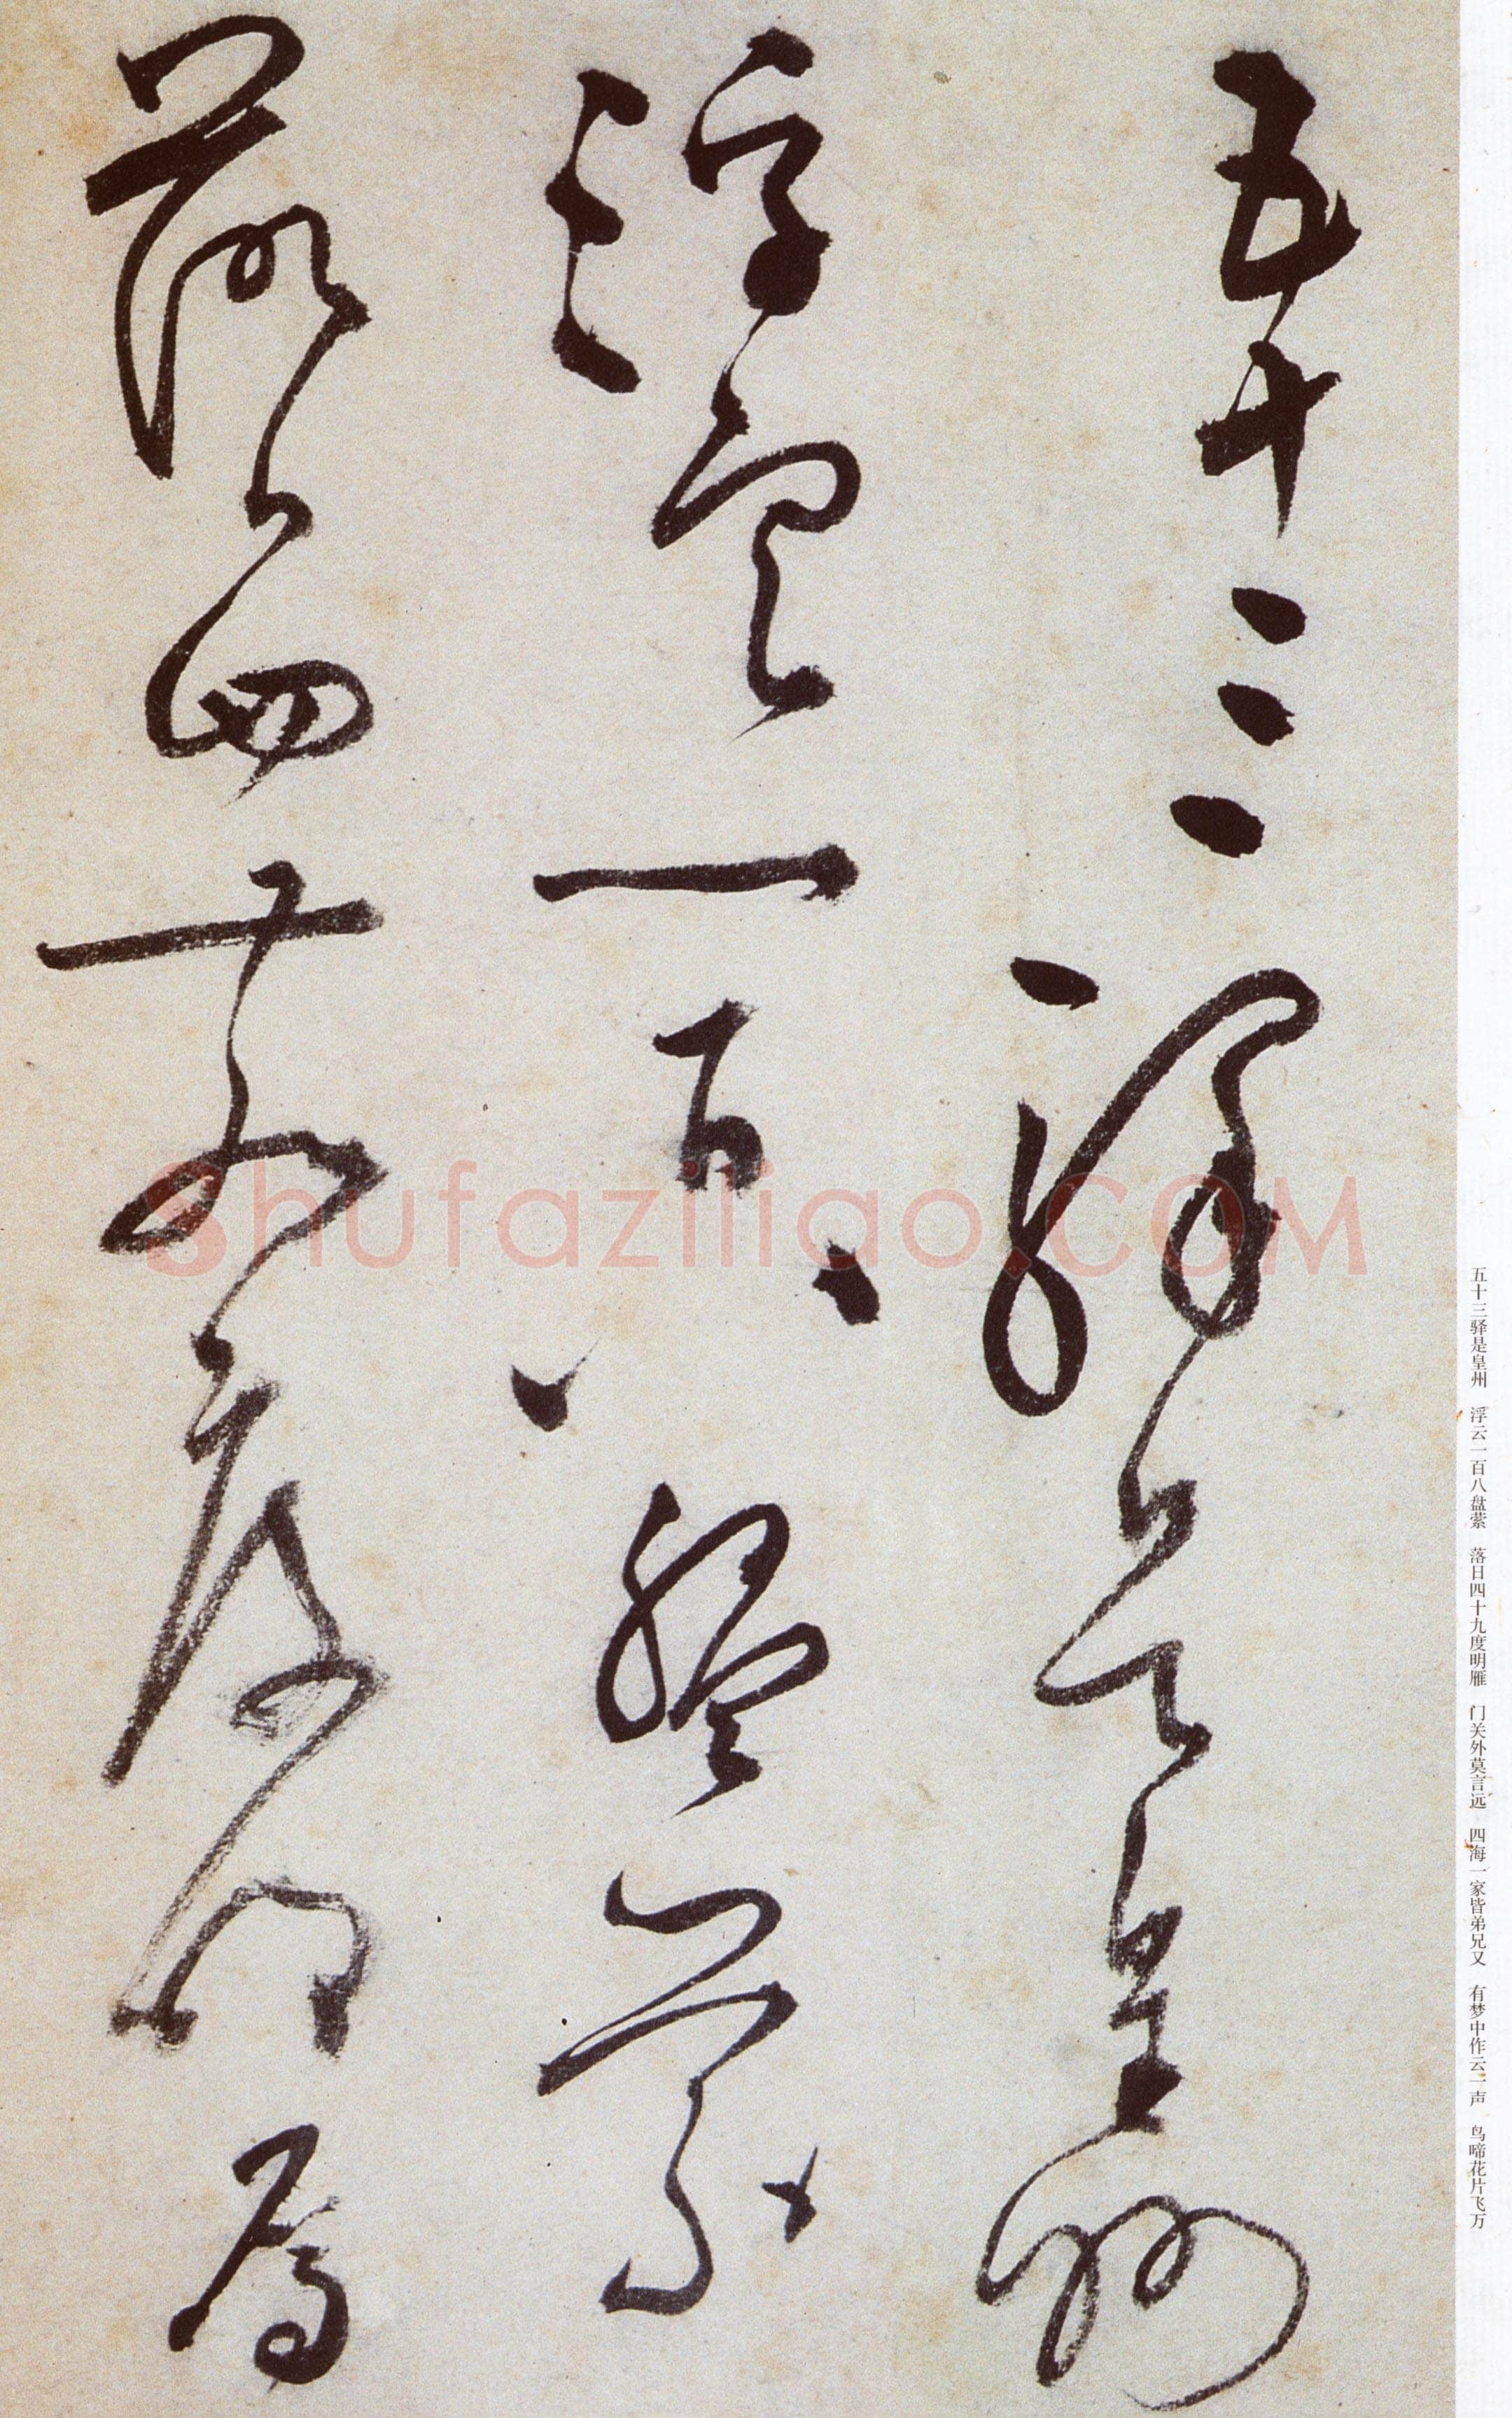 五十三驛是皇州
浮雲一百八盤縈
落日四十九度明鴈
五十三驿是皇州 浮云一百八盘萦 落日四十九度明雁 门关外莫言远 四海一家皆弟兄又 有梦中作云一声 鸟啼花片飞万
Shufaziliao.COM